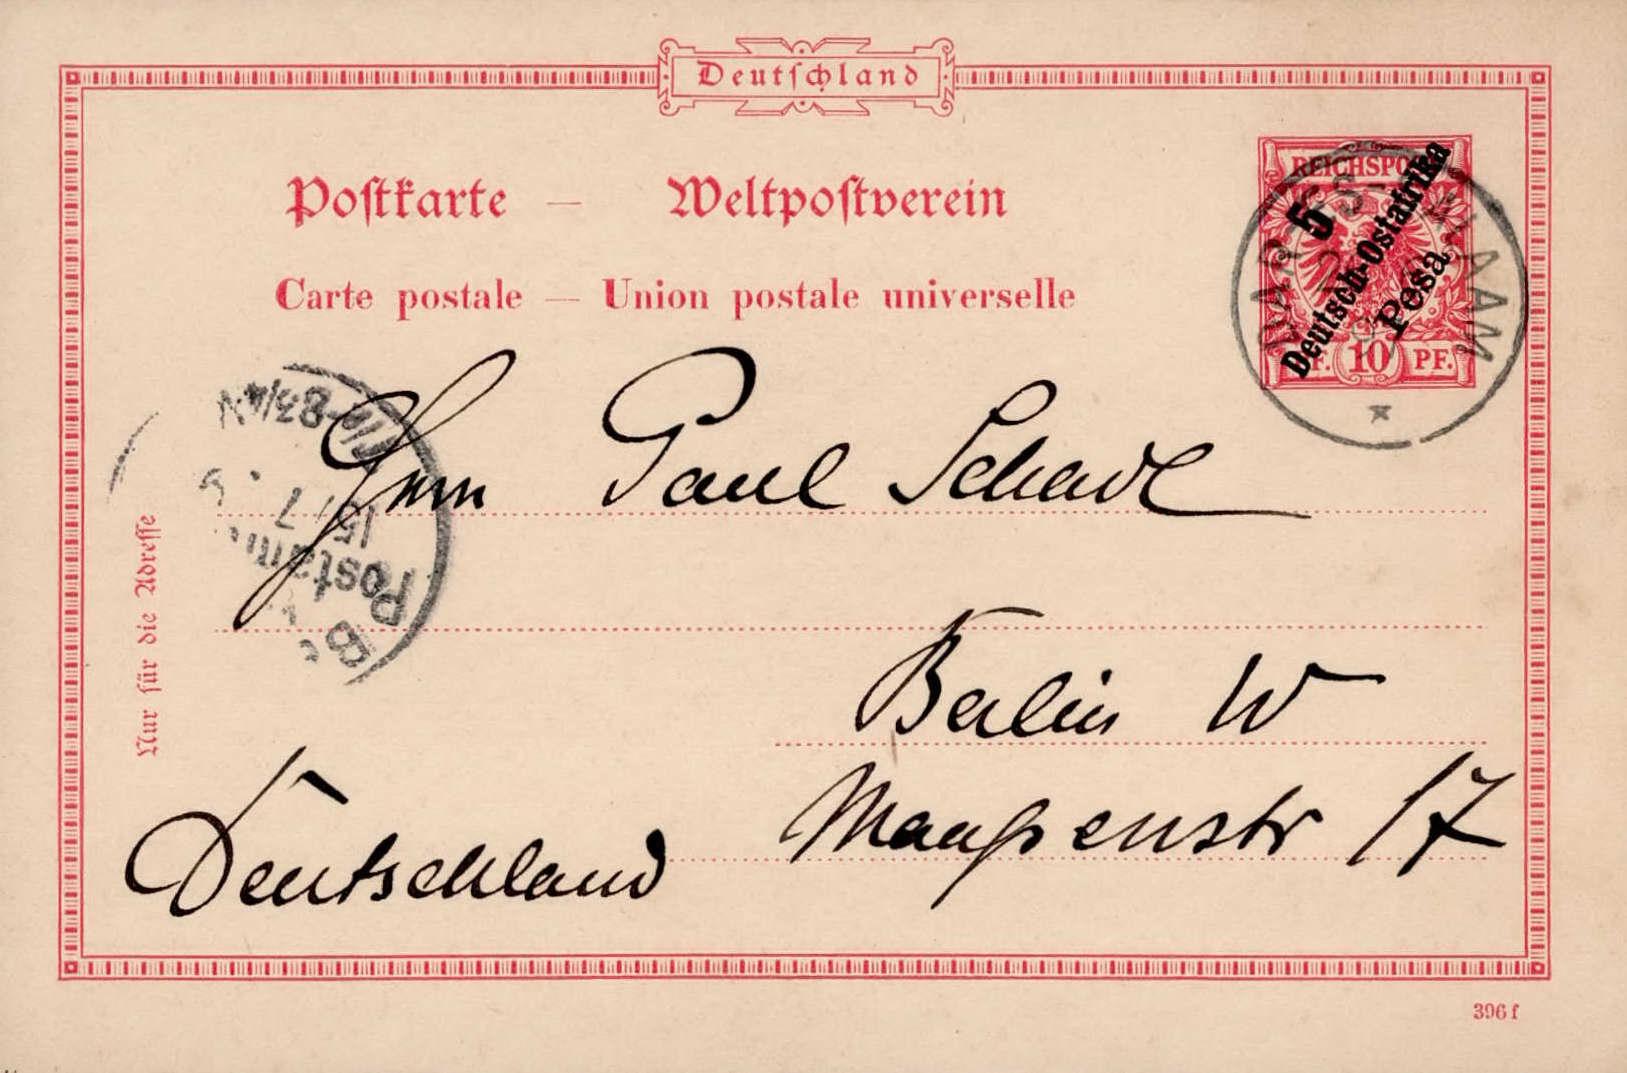 Deutschland
Postkarte — Weltpostverein
Carte postale — Union postale universelle
REICHSPOST
5
Deutsch-Ostafrika
Pesa
10 PF.
DAR-ES-SALAAM
Herrn Paul Schade
Berlin W
Maaßenstr 17
Deutschland
Nur für die Adresse
Postamt
15/7
8¾N
396 f